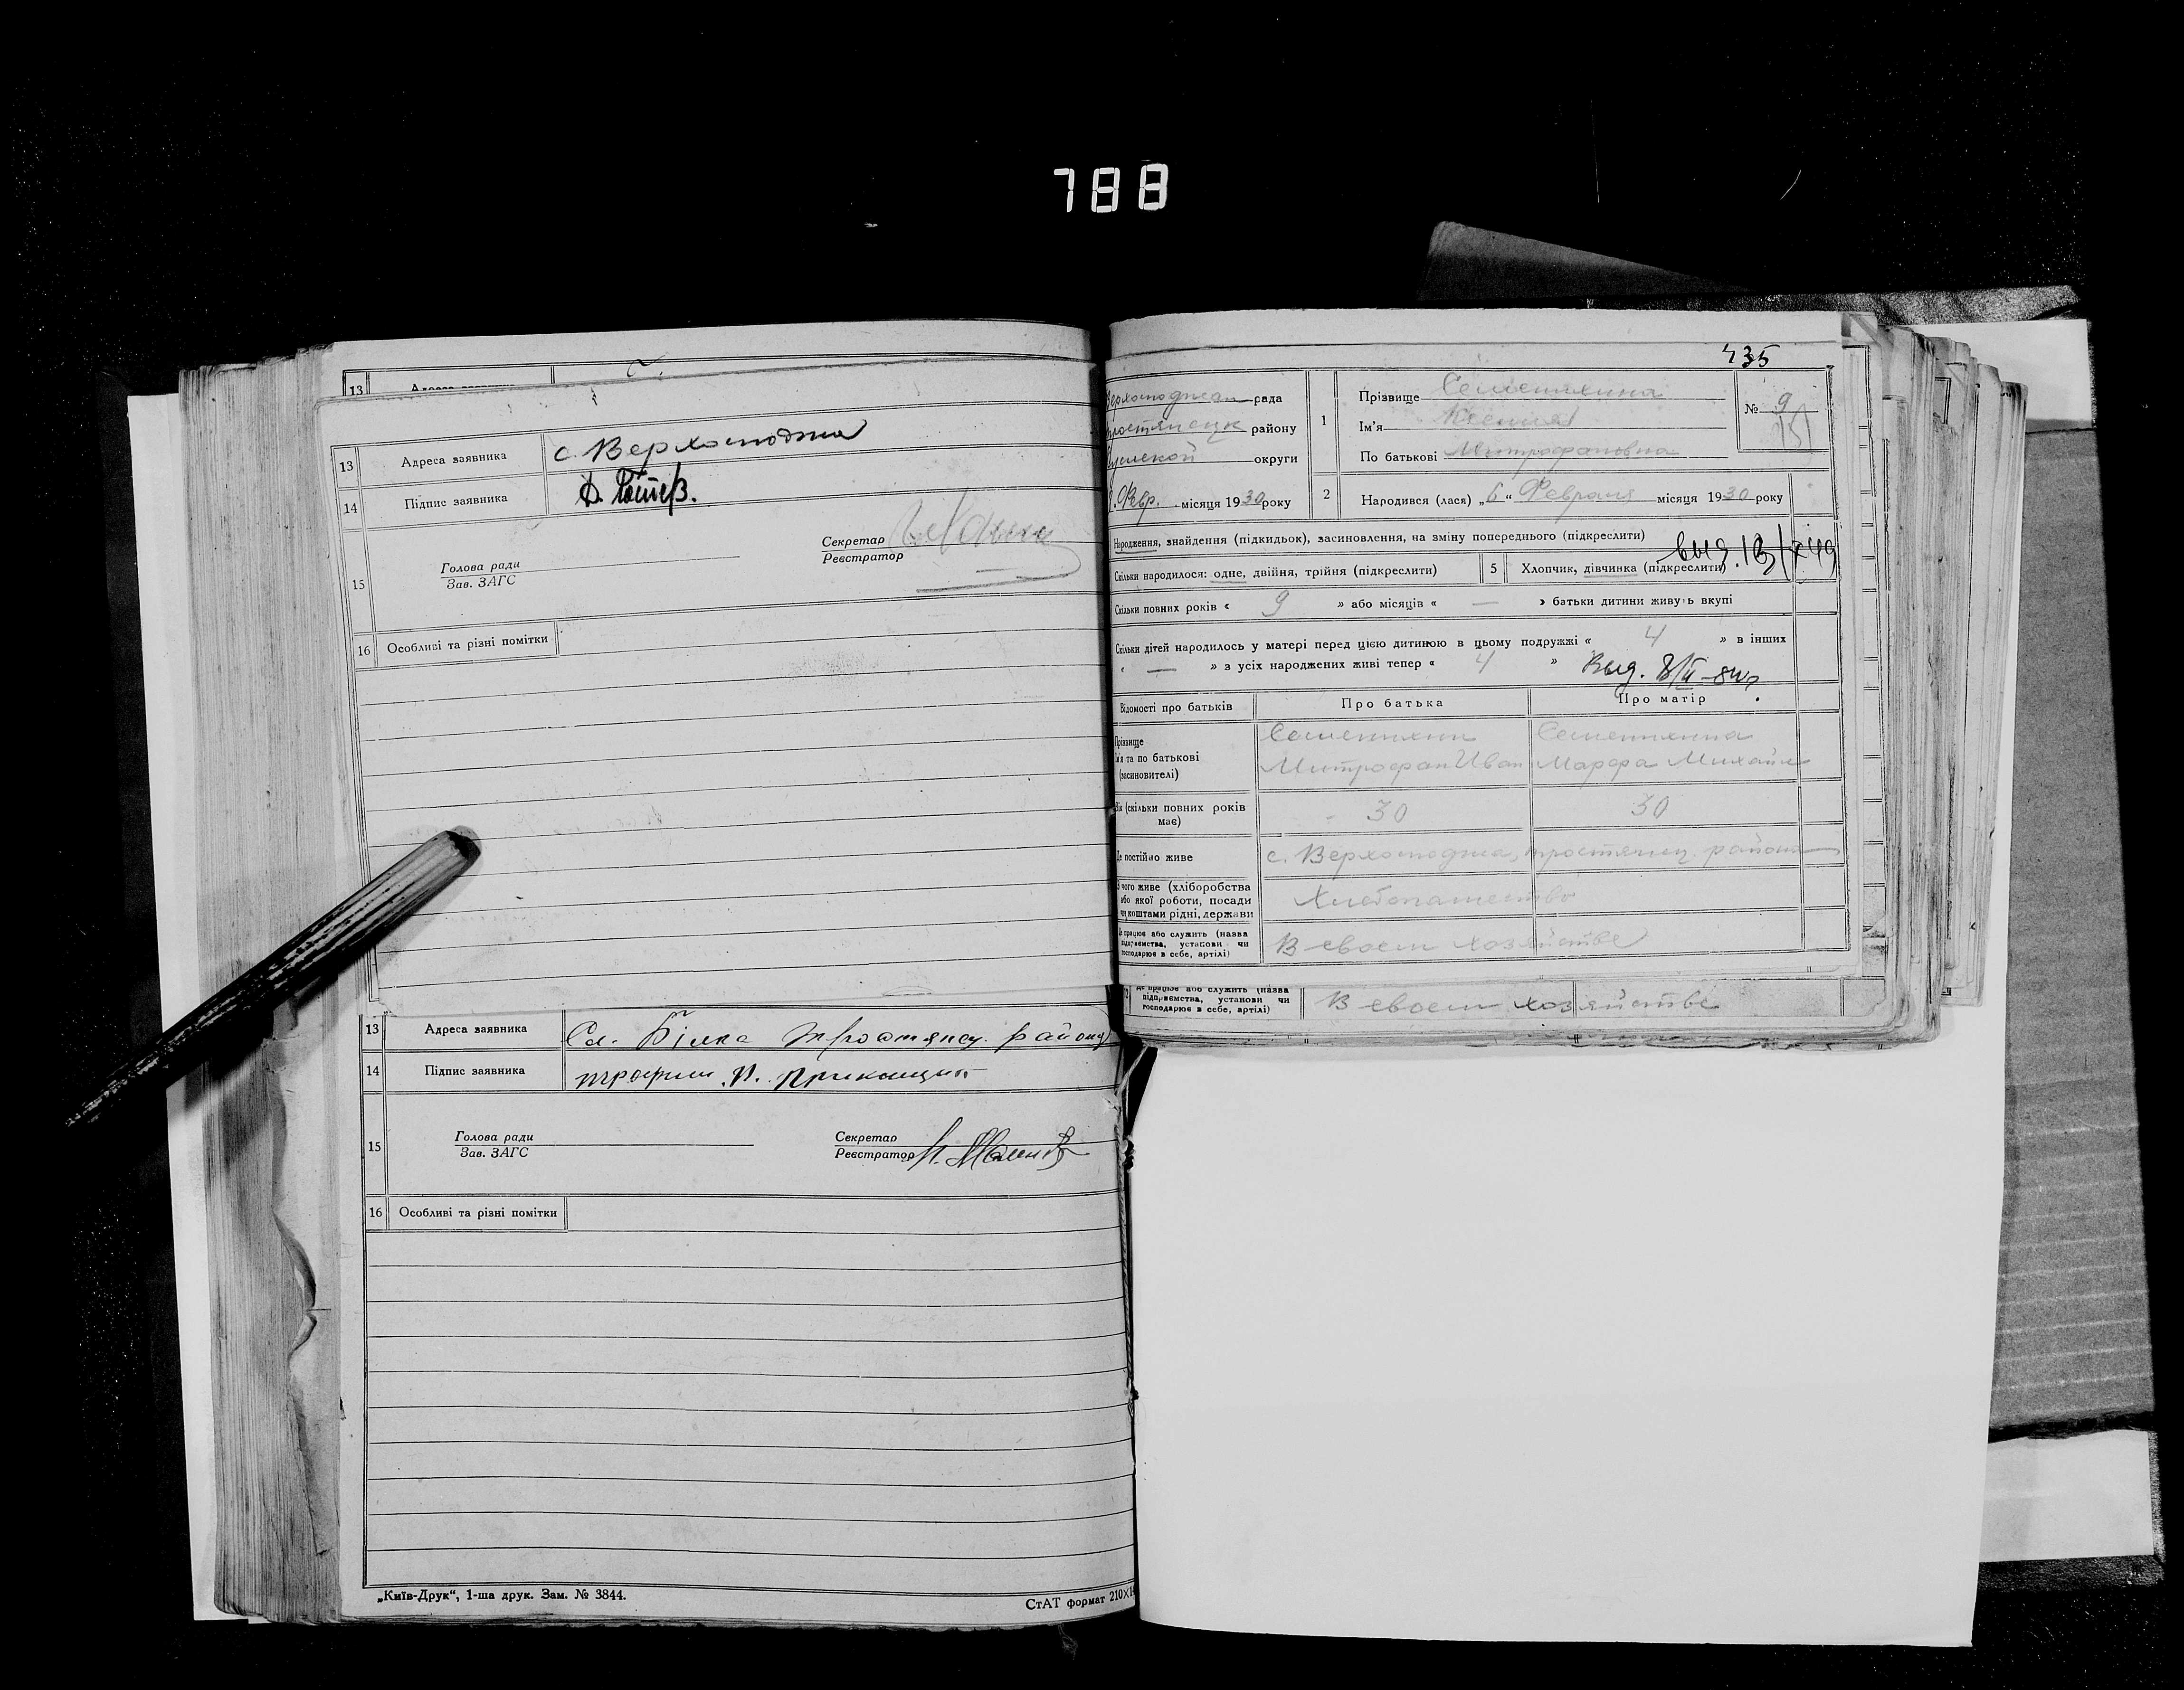 788
13 Адреса заявника
13 Адреса заявника с. Верхолюджа
14 Підпис заявника
15 Голова ради
Зав. ЗАГС
Секретар
Реєстратор
16 Особливі та різні помітки
13 Адреса заявника Сл. Білка Тростянец. району
14 Підпис заявника трофим
15 Голова ради
Зав. ЗАГС
Секретар
Реєстратор
16 Особливі та різні помітки
„Київ-Друк“, 1-ша друк. Зам. № 3844.
СтАТ формат 210×1
435
рада
району
округи
місяця 1930 року
1 Прізвище
Ім'я Ксения
По батькові Митрофановна
№ 9
2 Народився (лася) „6“ Февраля місяця 1930 року
Народження, знайдення (підкидьок), засиновлення, на зміну попереднього (підкреслити)
Скільки народилося: одне, двійня, трійня (підкреслити)
5 Хлопчик, дівчинка (підкреслити)
Скільки повних років « 9 » або місяців « — » батьки дитини живуть вкупі
Скільки дітей народилось у матері перед цією дитиною в цьому подружжі « 4 » в інших
« — » з усіх народжених живі тепер « 4 »
Выд.
Відомості про батьків
Про батька
Про матір
Прізвище
Ім'я та по батькові
(засиновителі)
Митрофан Иван
Марфа Михайл
Вік (скільки повних років має)
30
30
Де постійно живе
с. Верхолюджа, тростянец. района
З чого живе (хліборобства або якої роботи, посади чи коштами рідні, держави
Хлебопашество
Де працює або служить (назва підприємства, установи чи господарює в себе, артілі)
В своем хозяйстве
Де працює або служить (назва підприємства, установи чи господарює в себе, артілі)
В своем хозяйстве